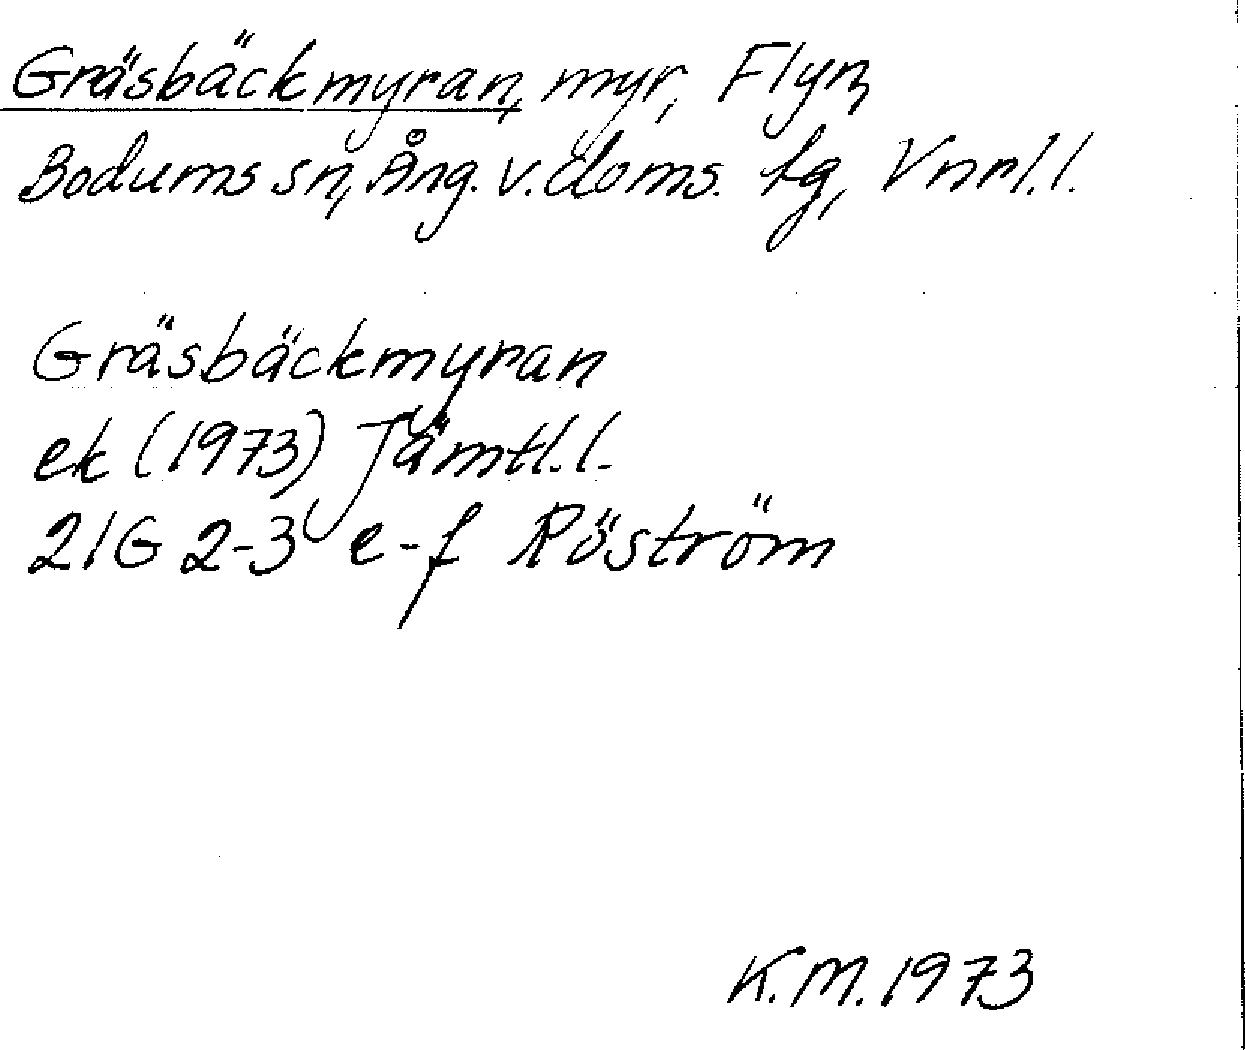 Gräsbäckmyran, myr, Flyn,
Bodums sn, Ång. v. doms. tg, Vnrl.l.
Gräsbäckmyran
ek (1973) Jämtl.l.
21G 2-3 e-f Röström
K.M. 1973